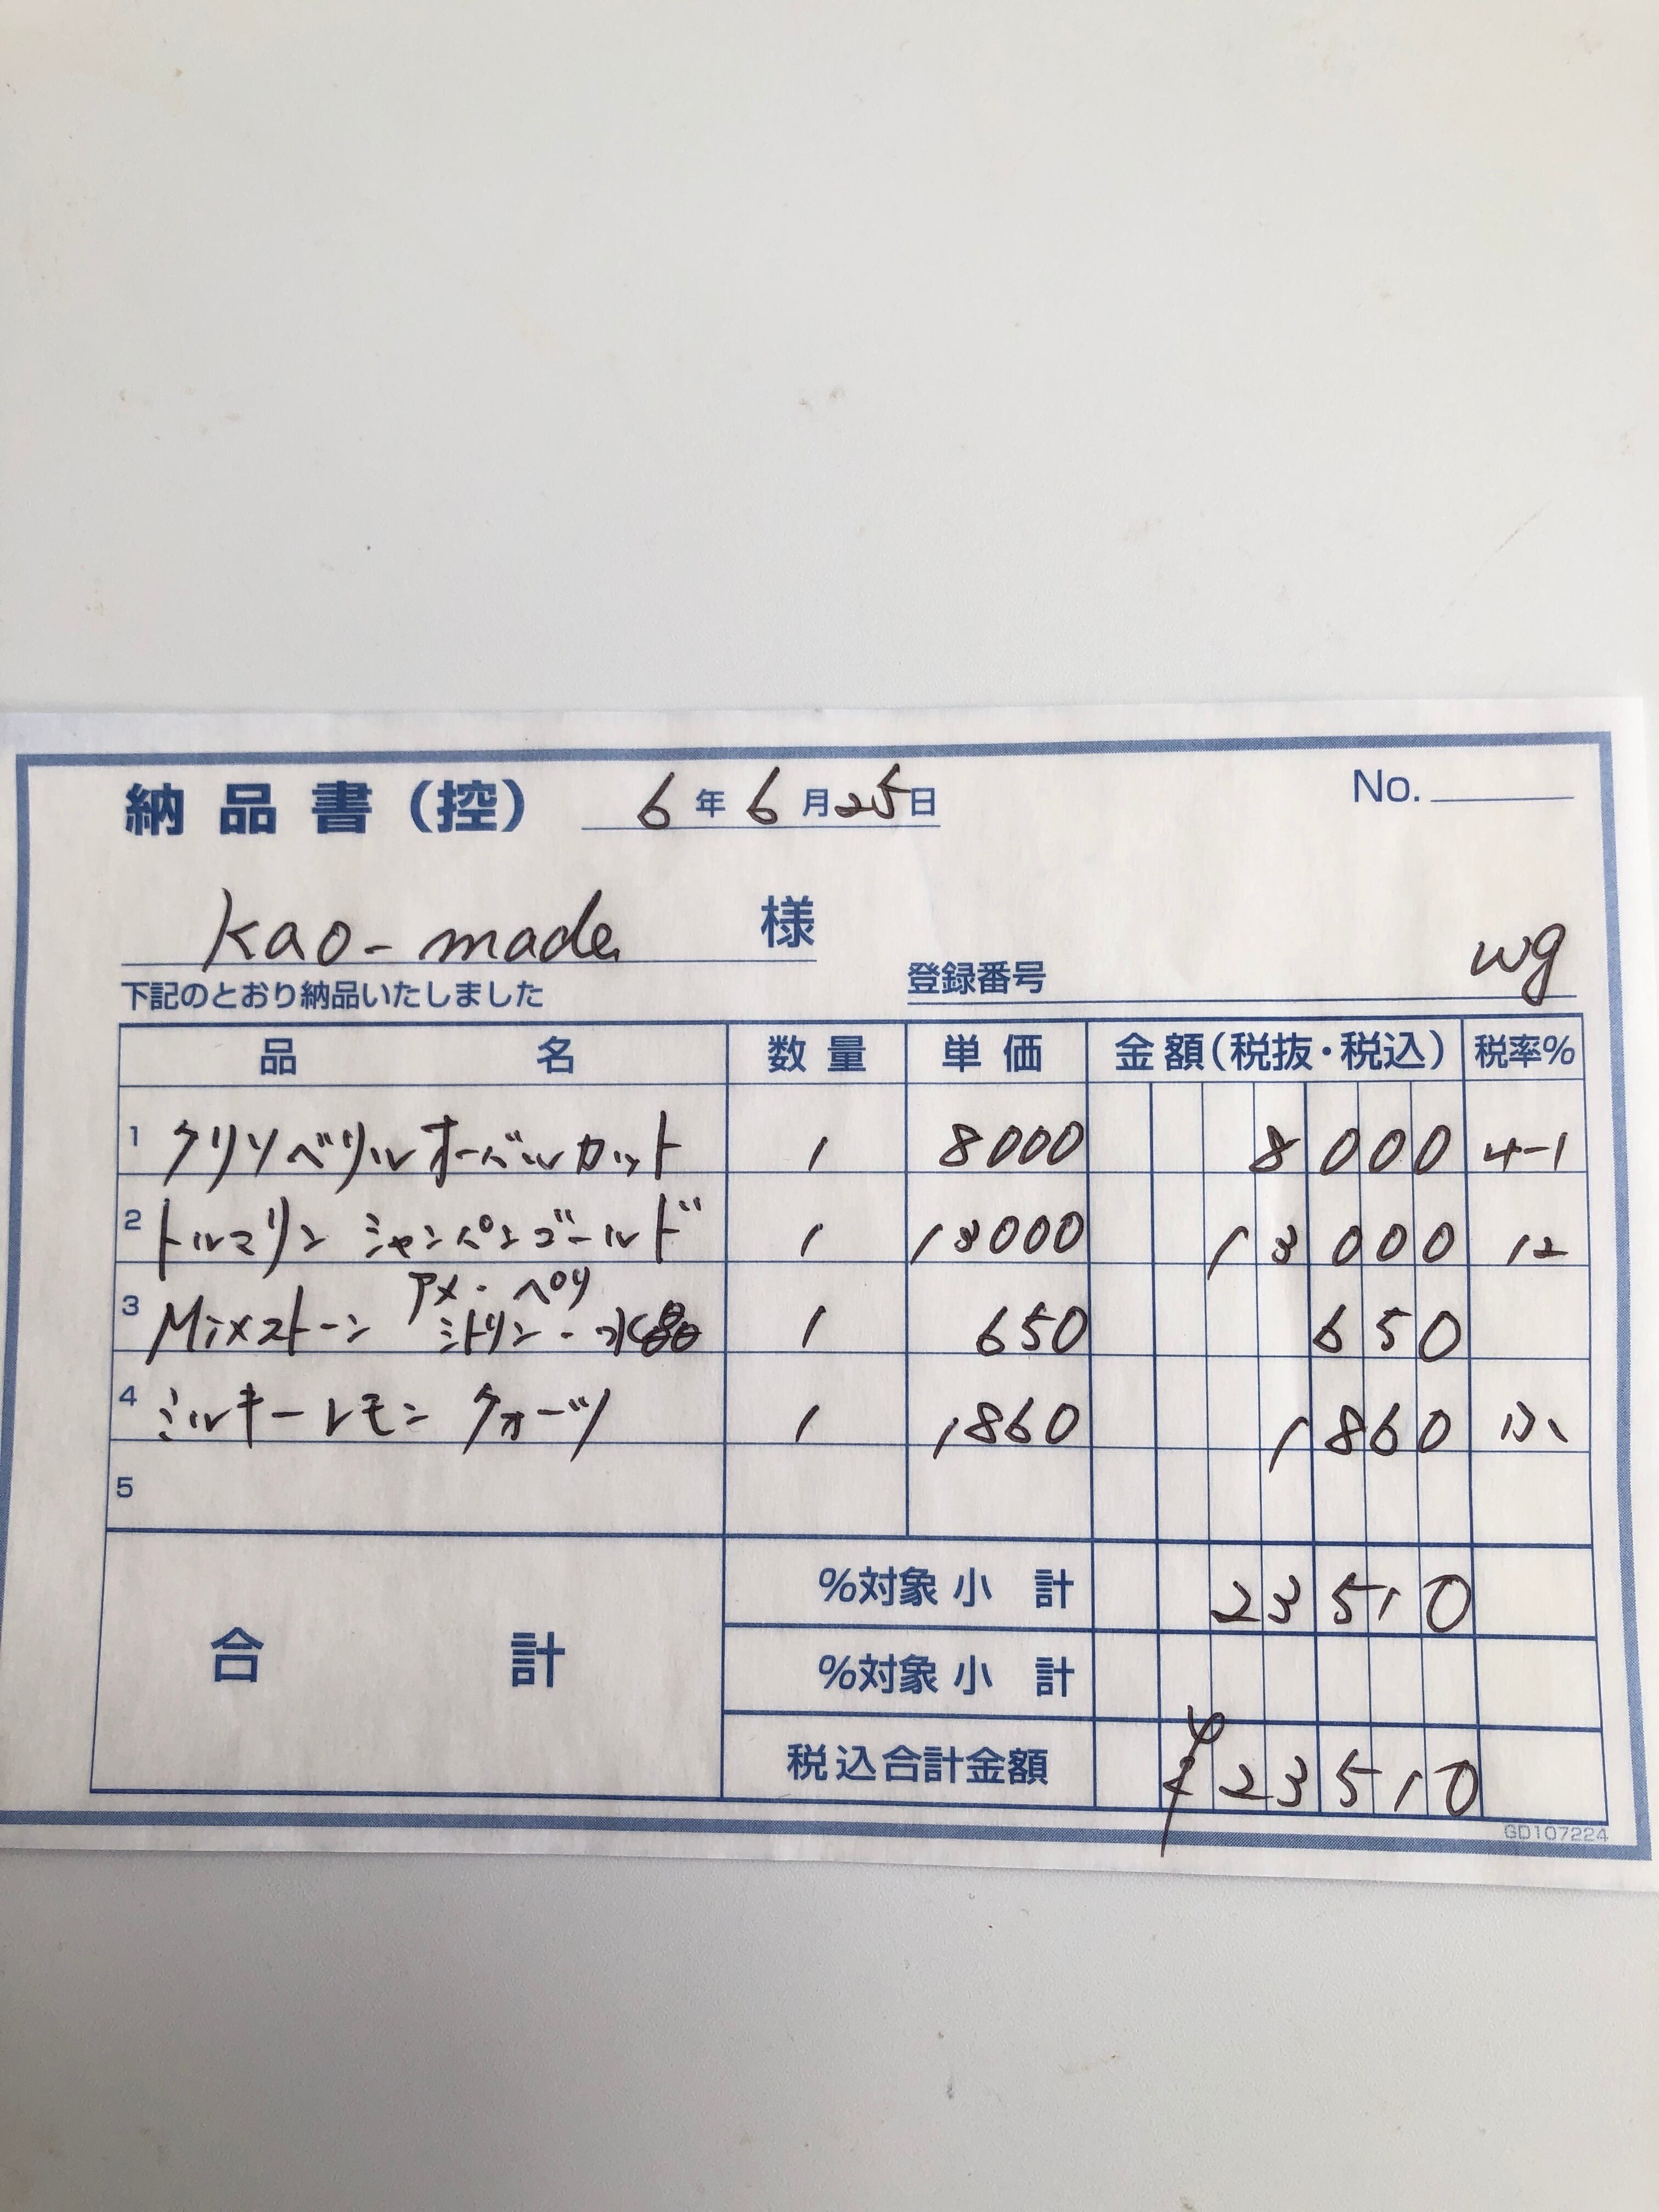 納品書(控) 6年6月25日 No.
kao-made 様
wg
下記のとおり納品いたしました 登録番号
品名 数量 単価 金額(税抜・税込) 税率%
1 クリソベリルオーバルカット 1 8000 8000 4-1
2 トルマリン シャンパンゴールド 1 13000 13000 12
アメ・ペリ
3 Mixストーン シトリン・水晶 1 650 650
4 ミルキーレモン クォーツ 1 1860 1860
5
%対象 小計 23510
合計
%対象 小計
税込合計金額 ¥23510
GD107224